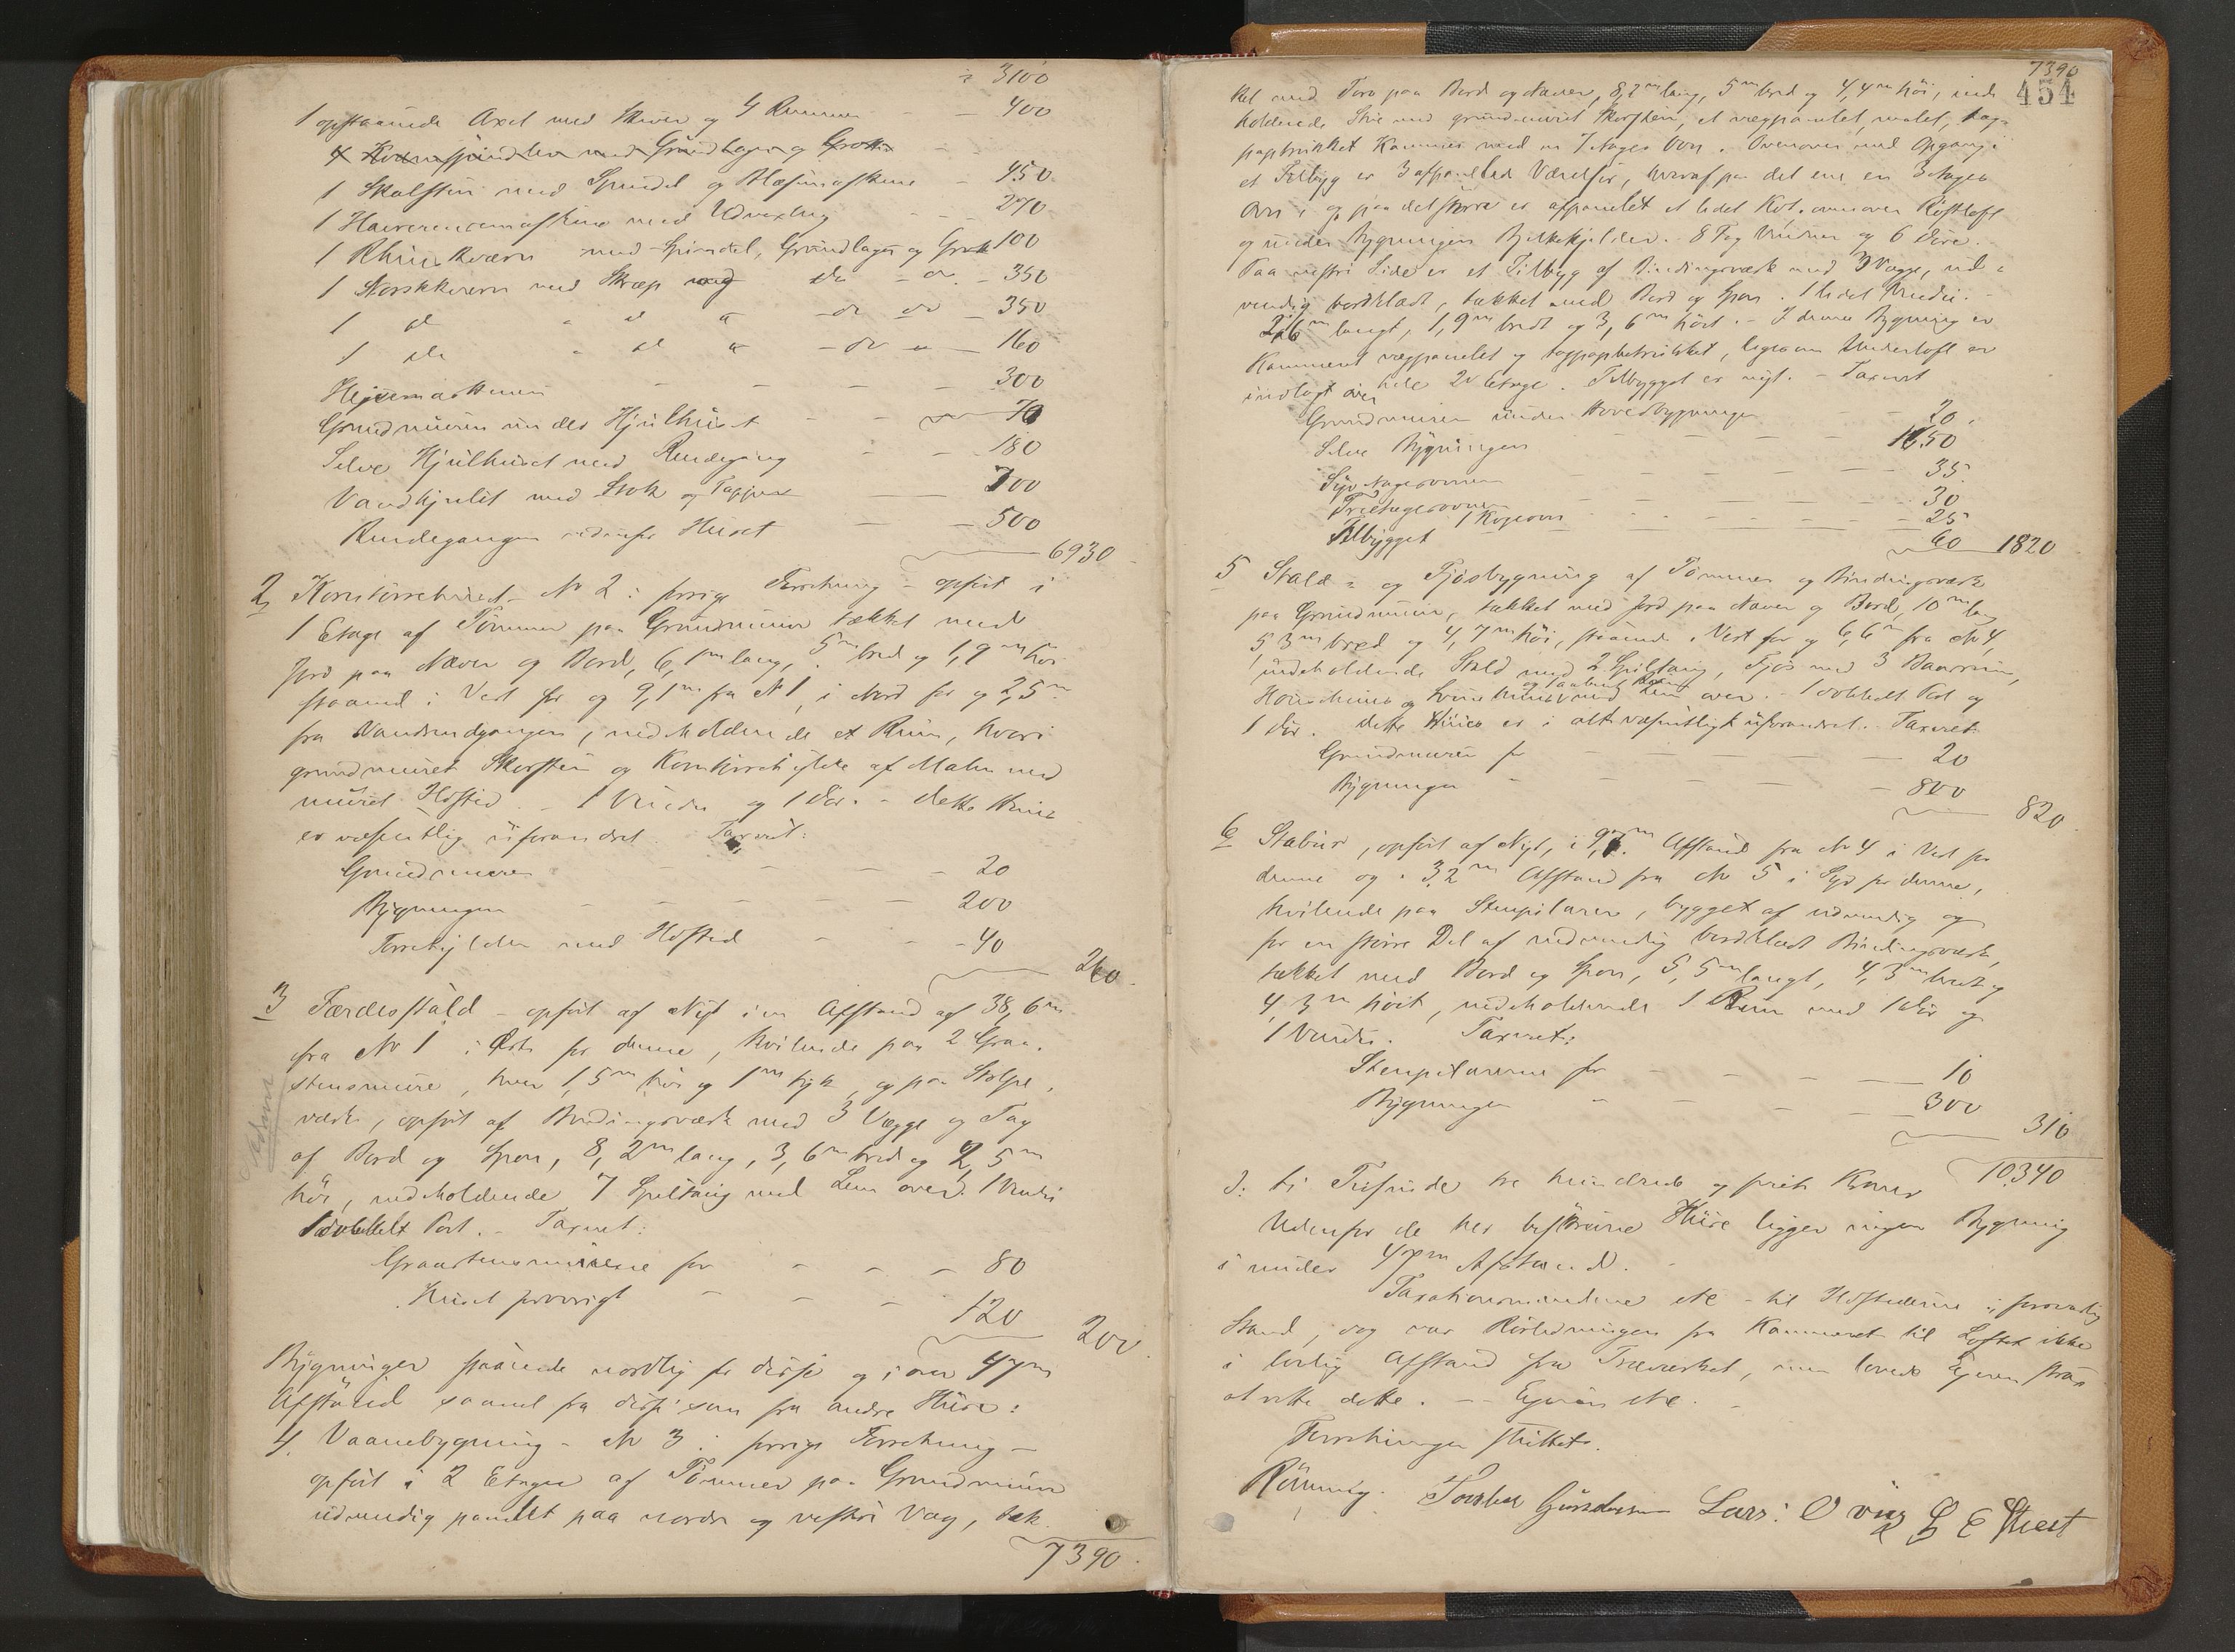 3100
1 opstaaende Axel med Skiver og 4 Remmer - - 400
4 Kværnspindler med Grundlager og Grotte
1 Skalsten med Spindel og Blæsemaskine - 450
1 Havrerensemaskine med Udvexling - - 270
1 Rhinkværn med Spindel, Grundlager og Grotte 100
1 Norsk kværn med Skrep og do - do - 350
1 do " do " - do do - 350
1 do " do " - do " - 160
Heisemaskinen - - - - 300
Grundmuren under Hjulhuset - - 70
Selve Hjulhuset med Rendegang - - 180
Vandhjulet med Stok og Tapper - 700
Rendegangen udenfor Huset - - 500
6930
2, Korntørrehuset - No 2 i forrige Forretning - opført i
1 Etage af Tømmer paa Grundmur tækket med
Jord paa Næver og Bord, 6,1 m lang, 5 m bred og 1,9 m høi
staaende i Vest for og 9,1 m fra No 1, i Nord for og 2,5 m
fra Vandrendegangen, indeholdende et Rum, hvori
grundmuret Skorsten og Korntørrehylde af Malm med
muret Ildsted. - 1 Vindu og 1 Dør. - Dette Huus
er væsentlig uforandret. Taxeret:
Grundmuren - - - - 20
Bygningen - - - - 200
Tørrehylden med Ildsted - - - 40
260
3 Færdesstald - opført af Nyt i en Afstand af 38,6 m
fra No 1 i Øst for denne, hvilende paa 2 Graa-
stensmure, hver 1,5 m høi og 1 m tyk, og paa Stolpe-
værk, opført af Bindingsværk med 3 Vægge og Tag
af Bord og Spon, 8,2 m lang, 3,6 m bred og 2,5 m
høi, indeholdende 7 Spiltaug med Lem over. 1 Vindu
1 dobbelt Port. - Taxeret:
Graastensmurene for - - - 80
Huset forøvrigt - - - 120
200
Bygninger staaende nordlig for disse og i over 47 m
Afstand saavel fra disse som fra andre Huse:
4. Vaanebygning - No 3 i forrige Forretning -
opført i 2 Etager af Tømmer paa Grundmur
udvendig panelet paa nordre og vestre Væg, tæk-
7390
7390
454
ket med Torv paa Bord og Næver, 8,2 m lang, 5 m bred og 4,4 m høi, inde-
holdende Stue med grundmuret Skorsten, et vægpanelet, malet, tag-
papbetrukket Kammer med en 7 Etages Ovn. Ovenover med Opgang i
et Tilbyg er 3 afpanelede Værelser, hvoraf paa det ene en 3 etages
Ovn, og paa det større er afpanelet et lidet Kot. ovenover Røstloft
og under Bygningen Bjelkekjelder. 8 Fag Vinduer og 6 Døre.
Paa vestre Side er et Tilbyg af Bindingsværk med 3 Vægge, ud-
vendig bordklædt, tækket med Bord og Spon. 1 lidet Vindu. -
2,6 m langt, 1,9 m bredt og 3,6 m høit. - I denne Bygning er
Kammeret vægpanelet og tagpapbetrukket, ligesom Underloft er
indlagt over hele 2de Etage. Tilbygget er nyt. - Taxeret
Grundmuren under Hovedbygningen - 20
Selve Bygningen - - - - 1650
Syv etagesovnen - - - - 35
Treetagesovnen - - - - 30
1 Kogeovn - - - - 25
Tilbygget 60
1820
5 Stald- og Fjøsbygning af Tømmer og Bindingsværk
paa Grundmur, tækket med Jord paa Næver og Bord, 10 m lang
5,3 m bred og 4,7 m høi, staaende i Vest for og 6,6 m fra No 4,
indeholdende Stald med 2 Spiltaug, Fjøs med 3 Baasrum,
Hønsehuus og Svinehuus med Lem over. - 1 dobbelt Port og
1 Dør. Dette Huus er i alt væsentligt uforandret. Taxeret
Grundmuren for - - - - 20
Bygningen - - - - 800
820
6 Stabur, opført af Nyt, i 9,7 m Afstand fra No 4 i Vest for
denne og i 3,2 m Afstand fra No 5 i Syd for denne,
hvilende paa Stenpilarer, bygget af udvendig og
for en større Del af indvendig bordklædt Bindingsværk,
tækket med Bord og Spon, 5,5 m langt, 4,3 m bredt og
4,3 m høit, indeholdende 1 Rum med 1 Dør og
1 Vindu. Taxeret:
Stenpilarerne for - - - - 10
Bygningen - - - - 300
310
10340
d: ti Tusinde tre hundrede og firti Kroner
Udenfor de her beskrevne Huse ligger ingen Bygning
i under 47 m Afstand.
Taxationsmændene etc - til Ildstederne i forsvarlig
Stand, dog var Rørledningen fra Kammeret til Loftet ikke
i lovlig Afstand fra Træværket, men lovede Eieren strax
at rette dette. - - Eieren etc.
Forretningen sluttet.
Rønning. Torster Gundersen Lars: O vig